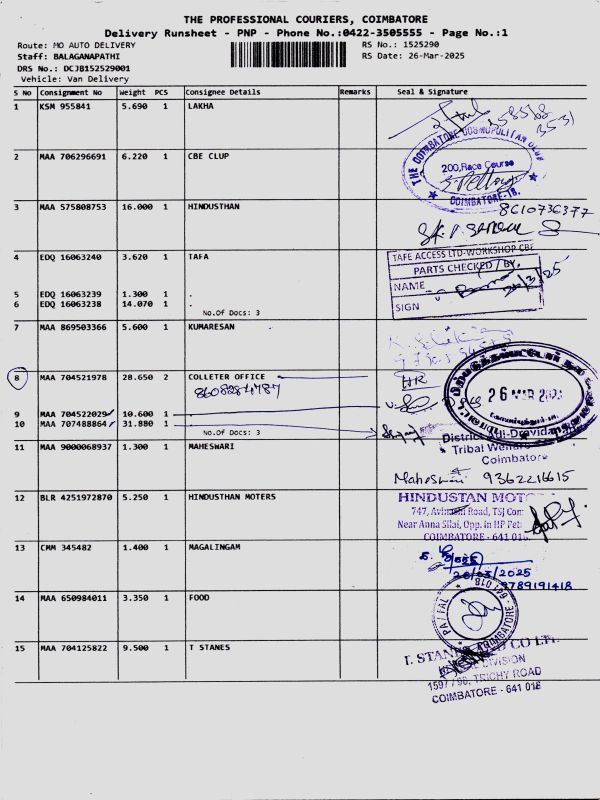 THE PROFESSIONAL COURIERS, COIMBATORE
Delivery Runsheet - PNP - Phone No.:0422-3505555 - Page No.:1
Route: MO AUTO DELIVERY
Staff: BALAGANAPATHI
DRS No.: DCJB152529001
Vehicle: Van Delivery
RS No.: 1525290
RS Date: 26-Mar-2025
S No Consignment No Weight PCS Consignee Details Remarks Seal & Signature
1 KSM 955841 5.690 1 LAKHA
2 MAA 706296691 6.220 1 CBE CLUP
THE COIMBATORE COSMOPOLITAN CLUB
200,Race Course
COIMBATORE-18.
3 MAA 575808753 16.000 1 HINDUSTHAN
8610736377
4 EDQ 16063240 3.620 1 TAFA
TAFE ACCESS LTD-WORKSHOP CBE
PARTS CHECKED / BY.
NAME
SIGN
26/3/25
5 EDQ 16063239 1.300 1 .
6 EDQ 16063238 14.070 1 .
No.Of Docs: 3
7 MAA 869503366 5.600 1 KUMARESAN
8 MAA 704521978 28.650 2 COLLETER OFFICE
8608284787
HR
26 MAR 2025
9 MAA 704522029 10.600 1 .
10 MAA 707488864 31.880 1 .
No.Of Docs: 3
District Adi-Dravidar
Tribal Welfare
Coimbatore
11 MAA 9000068937 1.300 1 MAHESWARI
Maheswari 9362216615
12 BLR 4251972870 5.250 1 HINDUSTHAN MOTERS
HINDUSTAN MOT
747, Avinashi Road, TSJ Com
Near Anna Silai, Opp. in HP Pet
COIMBATORE - 641 01
13 CMM 345482 1.400 1 MAGALINGAM
26/03/2025
9789191418
14 MAA 650984011 3.350 1 FOOD
641 018
15 MAA 704125822 9.500 1 T STANES
T. STAN CO LTD.
DIVISION
1597 / 98, TRICHY ROAD
COIMBATORE - 641 018